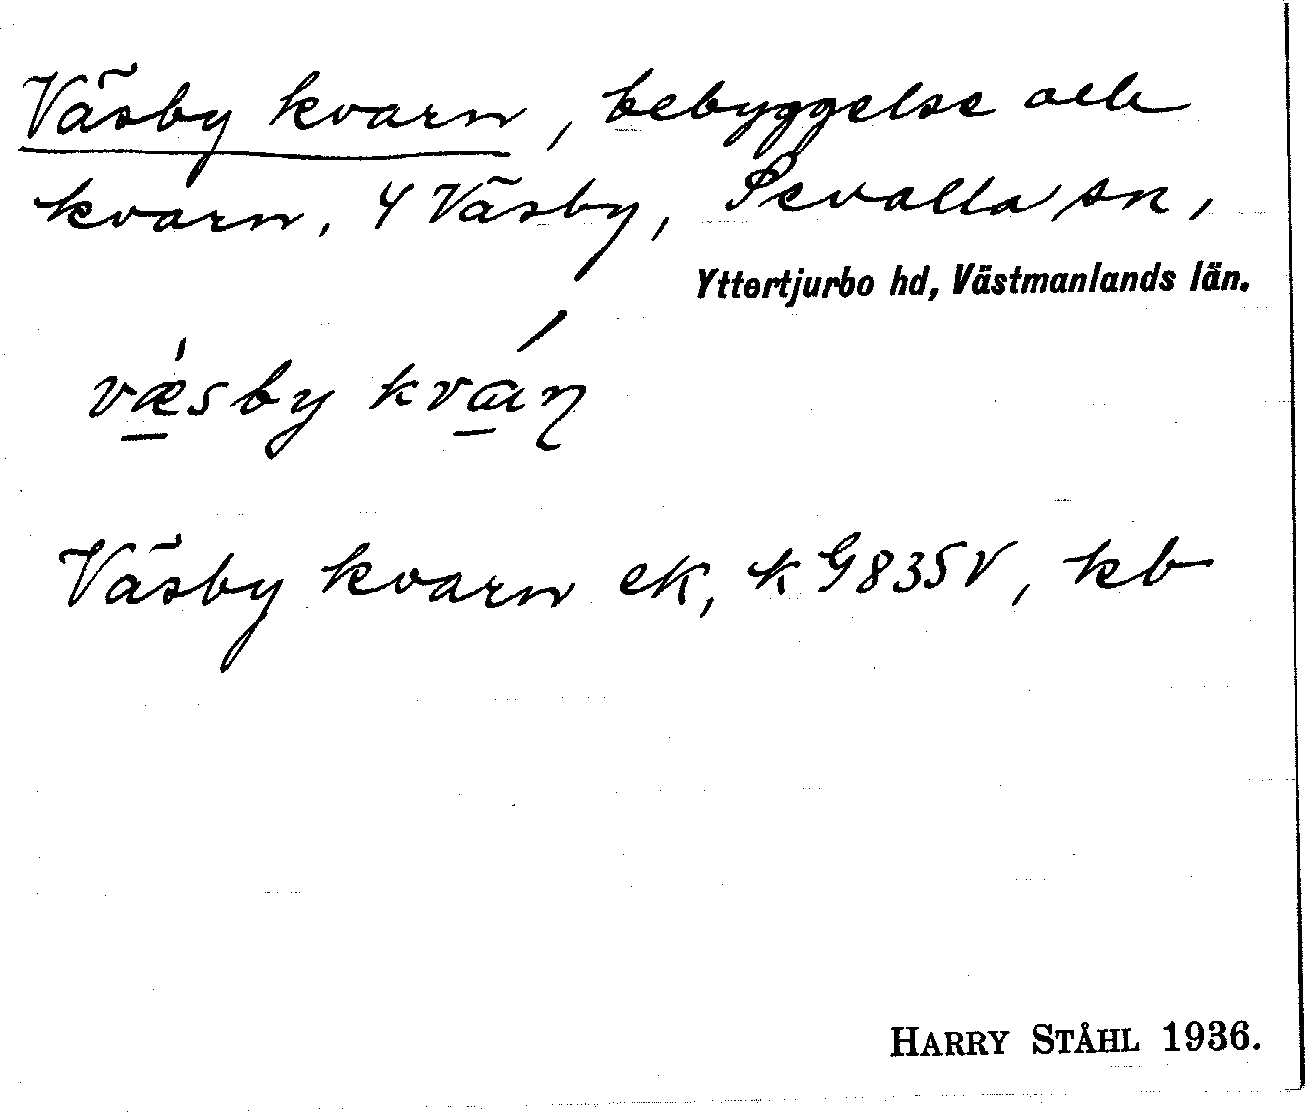 Väsby kvarn, bebyggelse och
kvarn, Y Väsby, Sevalla sn,
Yttertjurbo hd, Västmanlands län.
vǽ̲sby kvɑ̲́ɳ
Väsby kvarn ek, k G835V, kb
HARRY STÅHL 1936.